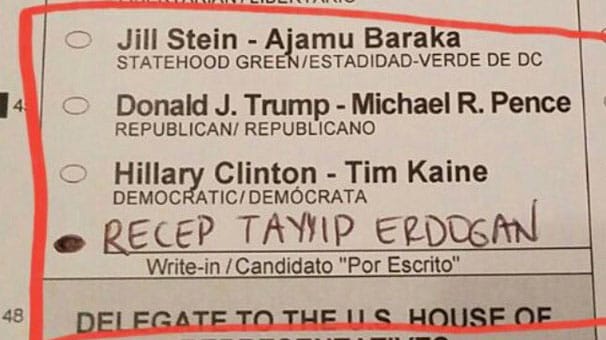 Jill Stein - Ajamu Baraka
STATEHOOD GREEN/ESTADIDAD-VERDE DE DC
Donald J. Trump - Michael R. Pence
REPUBLICAN/ REPUBLICANO
Hillary Clinton - Tim Kaine
DEMOCRATIC/ DEMÓCRATA
RECEP TAYYIP ERDOGAN
Write-in / Candidato "Por Escrito"
48
DELEGATE TO THE U.S. HOUSE OF
REPRESENTATIVES